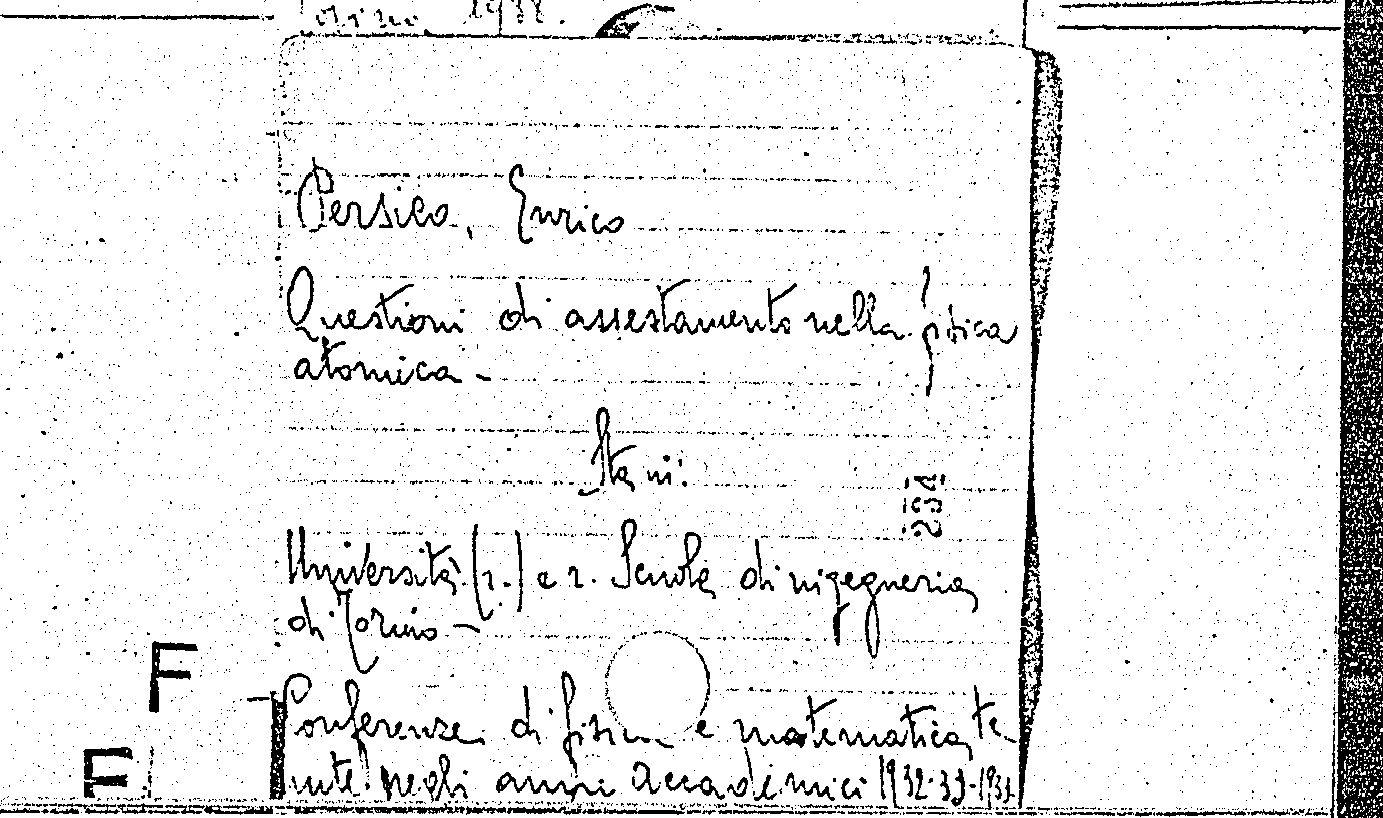 Torino 1938.
Persico, Enrico
Questioni di assestamento nella fisica
atomica -
Sta in:
234
Università (r.) e r. Scuola di ingegneria
di Torino -
Conferenze di fisica e matematica te-
nute negli anni accademici 1932-33-
F
F